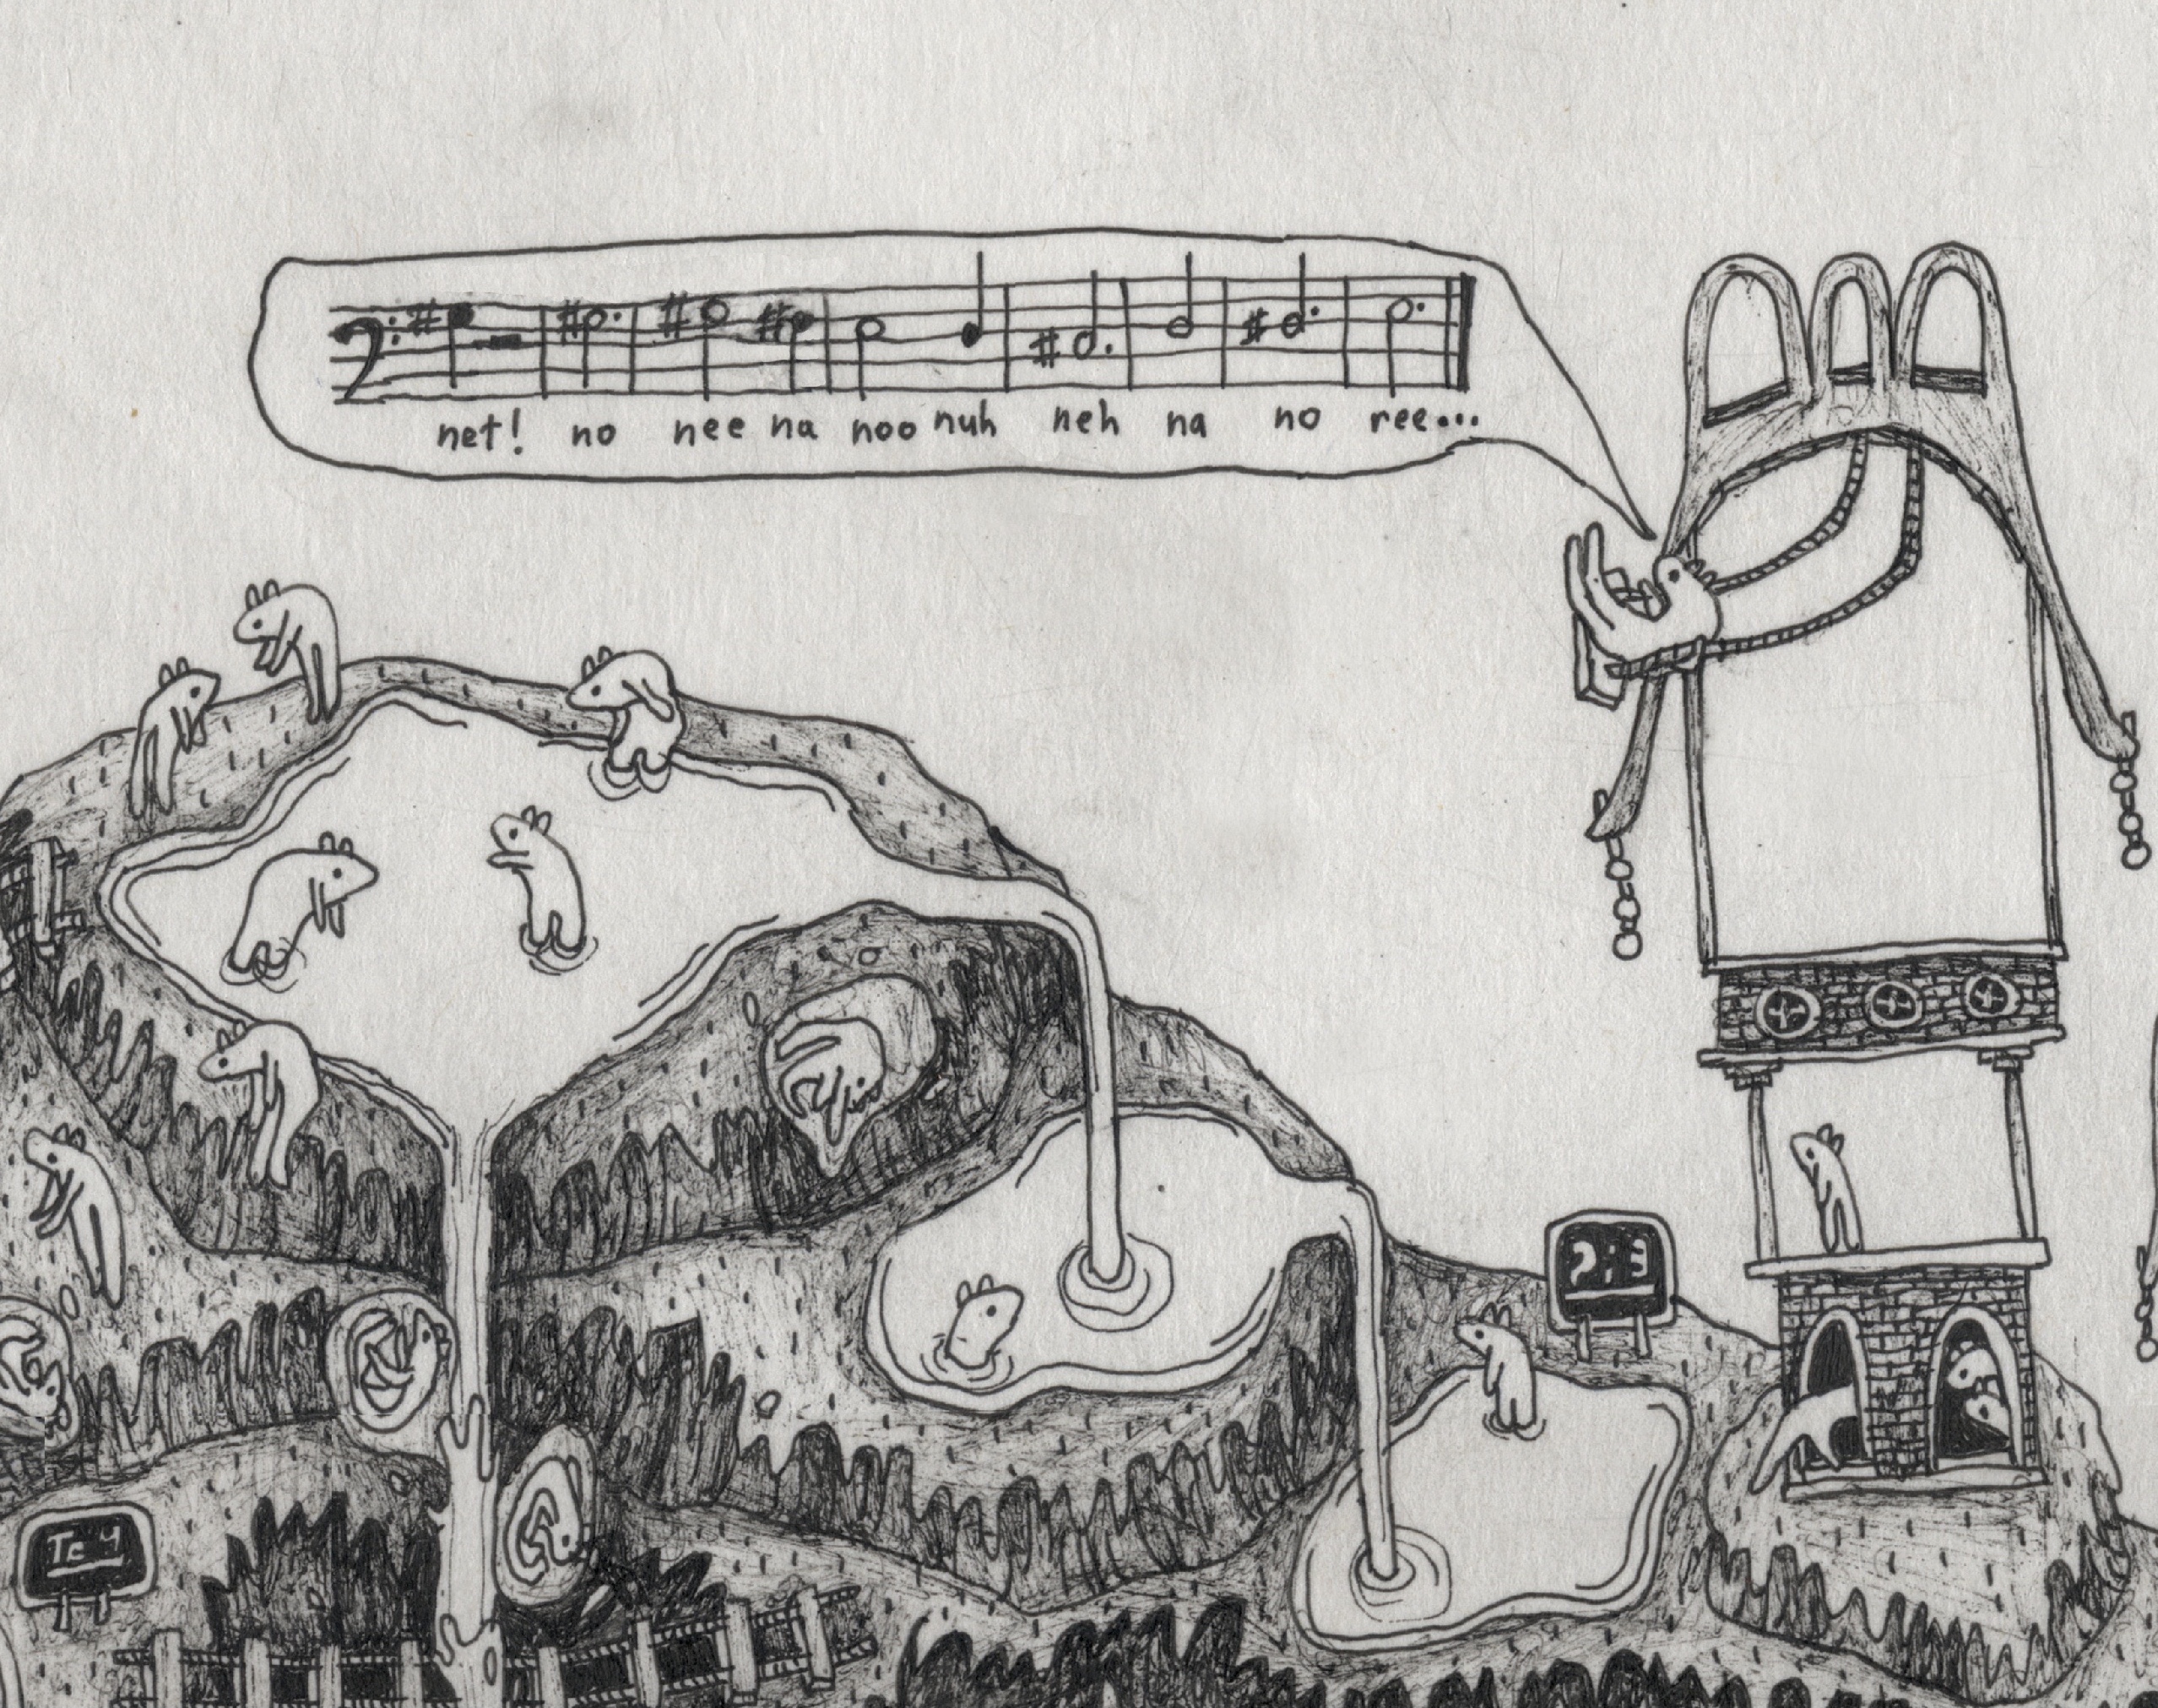 net! no nee na noo nuh neh na no ree...